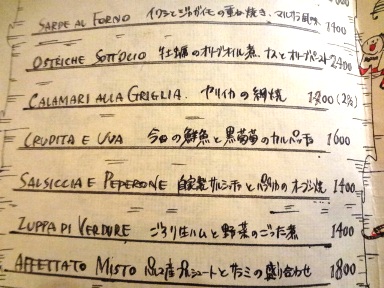 SARPE AL FORNO イワシとジャガイモの重ね焼き、マルケ風味 1400
OSTRICHE SOTT'OLIO 牡蠣のオリーブオイル煮、ナスとオリーブペースト 2400
CALAMARI ALLA GRIGLIA. ヤリイカの網焼 1200 (2ハイ)
CRUDITA E UVA 今日の鮮魚と黒葡萄のカルパッチョ 1600
SALSICCIA E PEPERONE 自家製サルシッチャとパプリカのオーブン焼 1400
ZUPPA DI VERDURE ごろり生ハムと野菜のごった煮 1400
AFFETTATO MISTO パルマ産プロシュートとサラミの盛り合わせ 1800